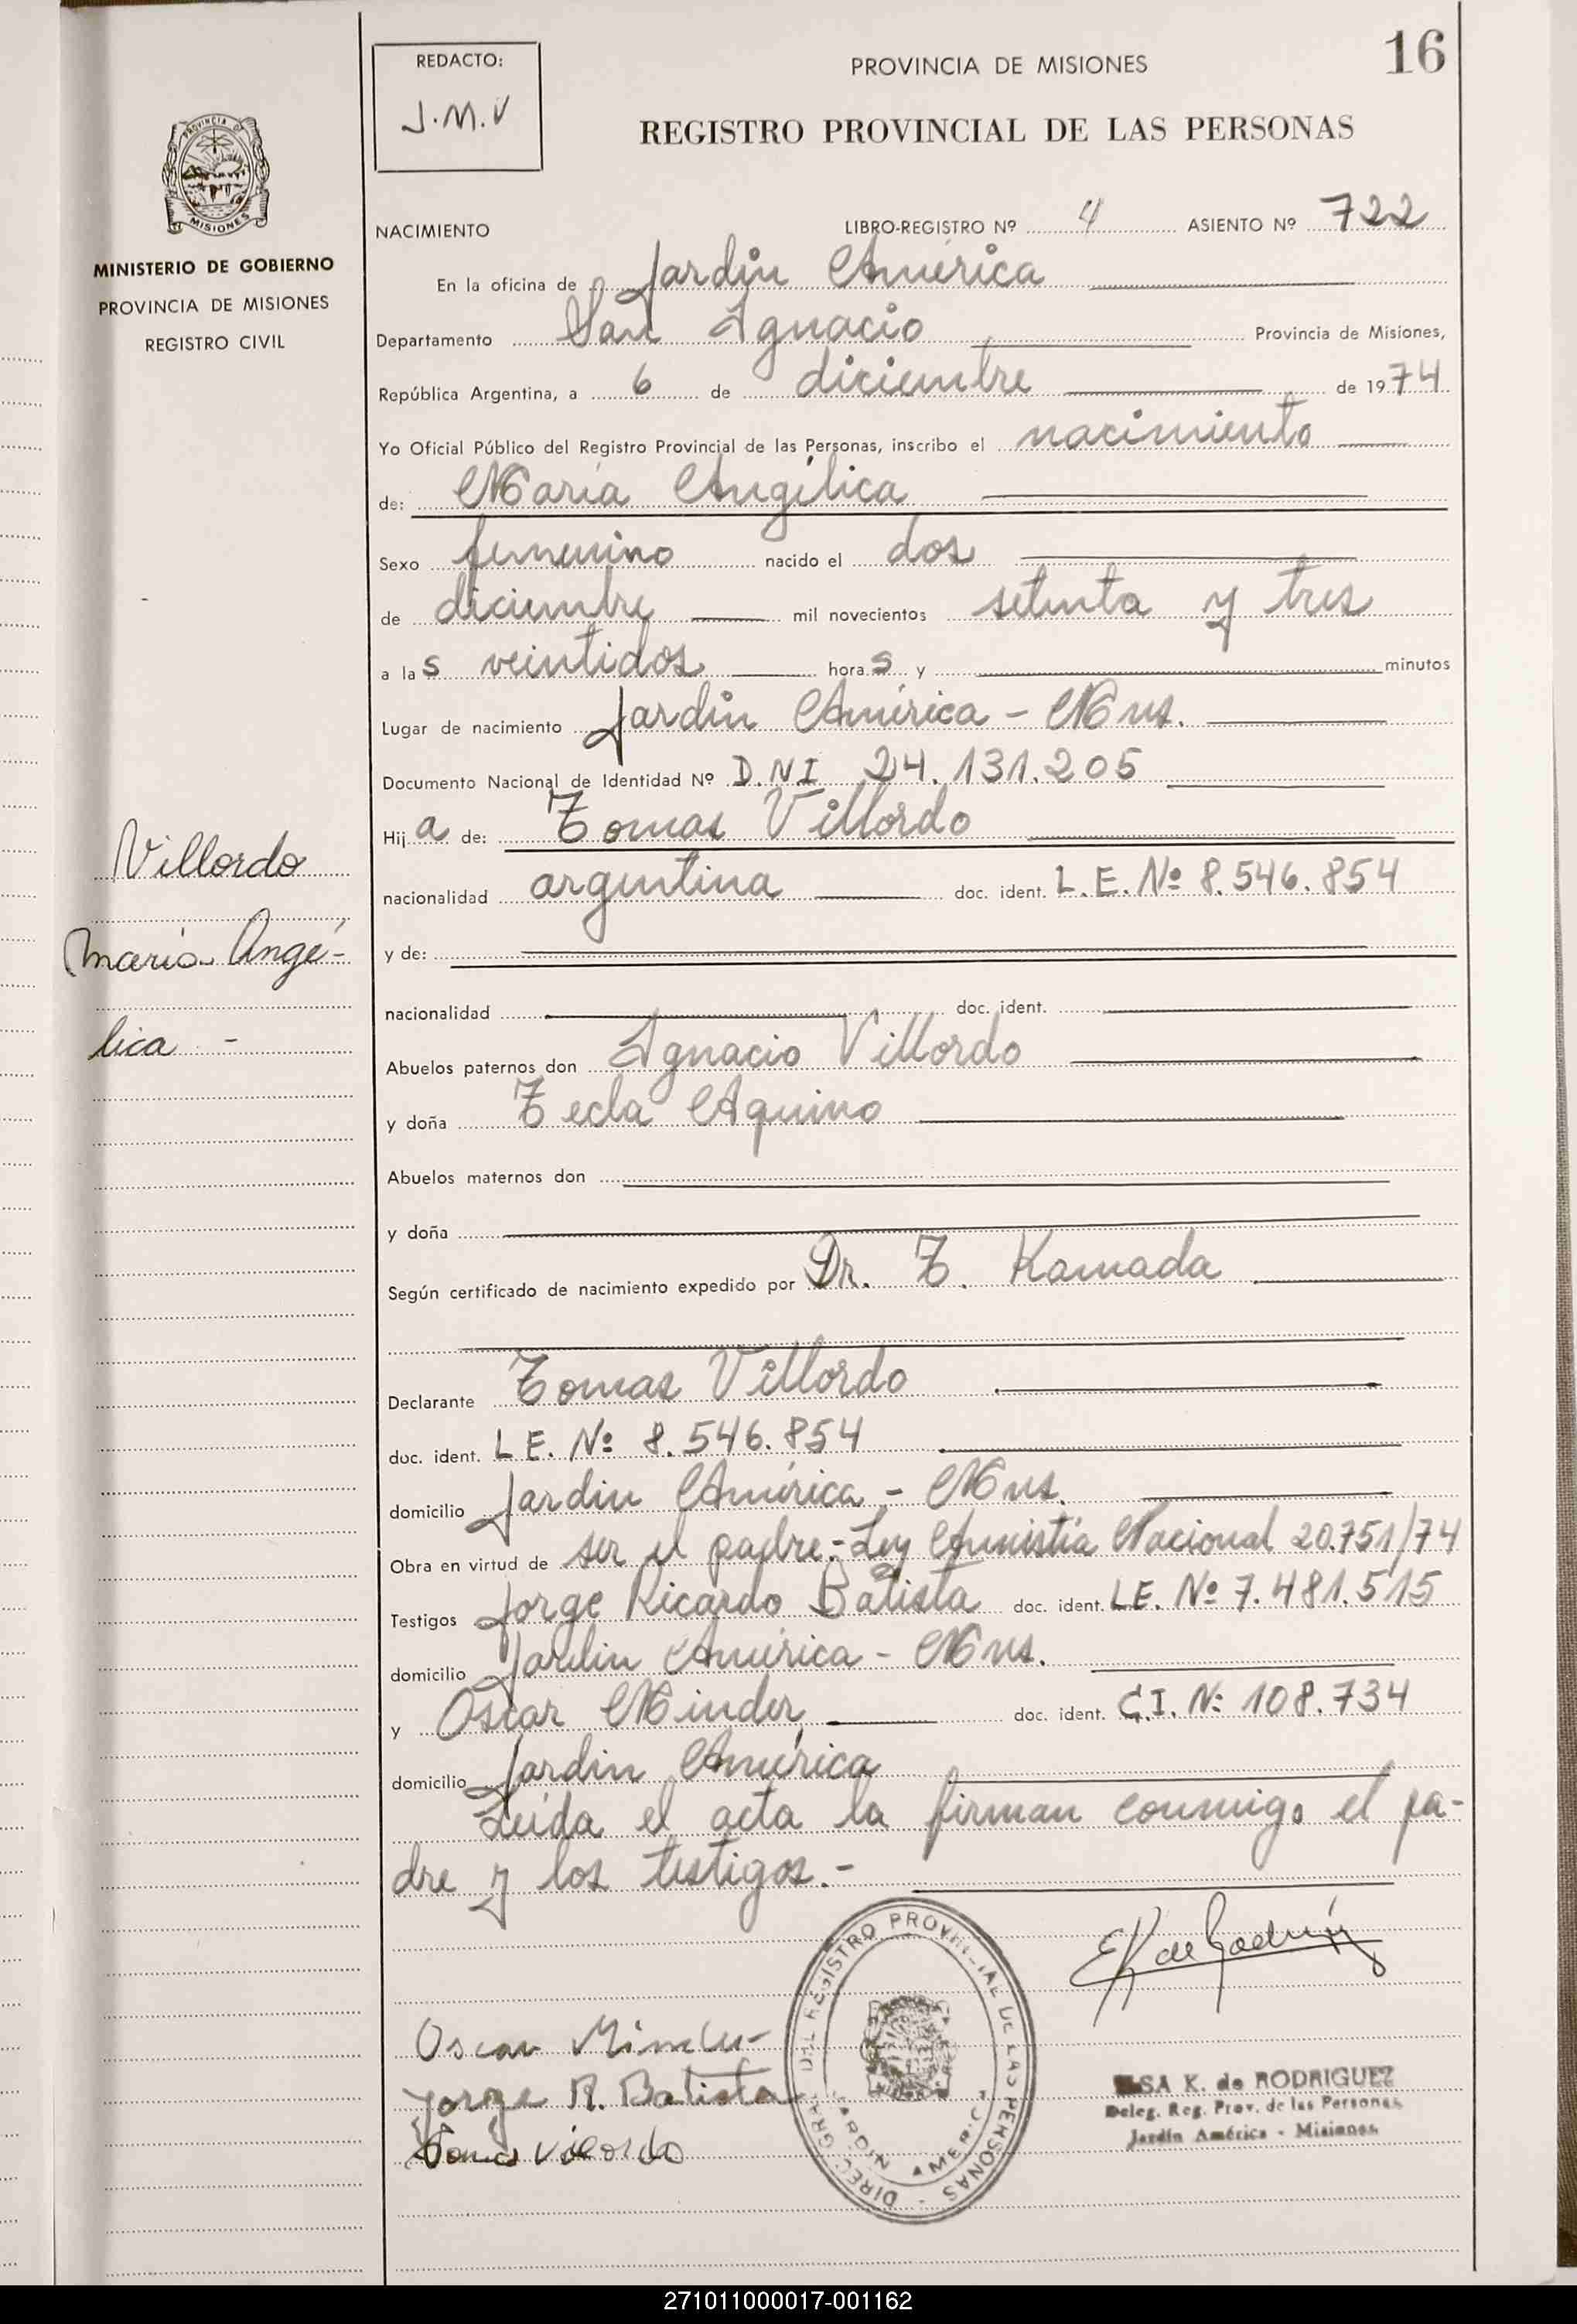 16
REDACTO:
J.M.V
PROVINCIA DE MISIONES
REGISTRO PROVINCIAL DE LAS PERSONAS
PROVINCIA DE
MISIONES
MINISTERIO DE GOBIERNO
PROVINCIA DE MISIONES
REGISTRO CIVIL
NACIMIENTO LIBRO-REGISTRO Nº 4 ASIENTO Nº 722
En la oficina de Jardín América
Departamento San Ignacio Provincia de Misiones,
República Argentina, a 6 de diciembre de 1974
Yo Oficial Público del Registro Provincial de las Personas, inscribo el nacimiento
de: María Angélica
Sexo femenino nacido el dos
de diciembre mil novecientos setenta y tres
a las veintidos horas y minutos
Lugar de nacimiento Jardín América - Mns.
Documento Nacional de Identidad Nº D.N I 24.131.205
Hija de: Tomas Villordo
nacionalidad argentina doc. ident. L.E. Nº 8.546.854
y de:
nacionalidad doc. ident.
Abuelos paternos don Ignacio Villordo
y doña Tecla Aquino
Abuelos maternos don
y doña
Según certificado de nacimiento expedido por Dr. T. Kamada
Declarante Tomas Villordo
doc. ident. L E. Nº 8.546.854
domicilio Jardin América - Mns.
Obra en virtud de ser el padre.- Ley Amnistía Nacional 20.751/74
Testigos Jorge Ricardo Batista doc. ident. L.E. Nº 7.481.515
domicilio Jardin América - Mns.
y Oscar Minder doc. ident. C.I. Nº 108.734
domicilio Jardin América
Leída el acta la firman conmigo el pa-
dre y los testigos.-
Villordo
Maria Angé-
lica -
Oscar Minder
Jorge R. Batista
Tomas Villordo
DIREC. GRAL. DEL REGISTRO PROVINCIAL DE LAS PERSONAS
JARDIN AMERICA
ELSA K. de RODRIGUEZ
Deleg. Reg. Prov. de las Personas
Jardín América - Misiones
271011000017-001162